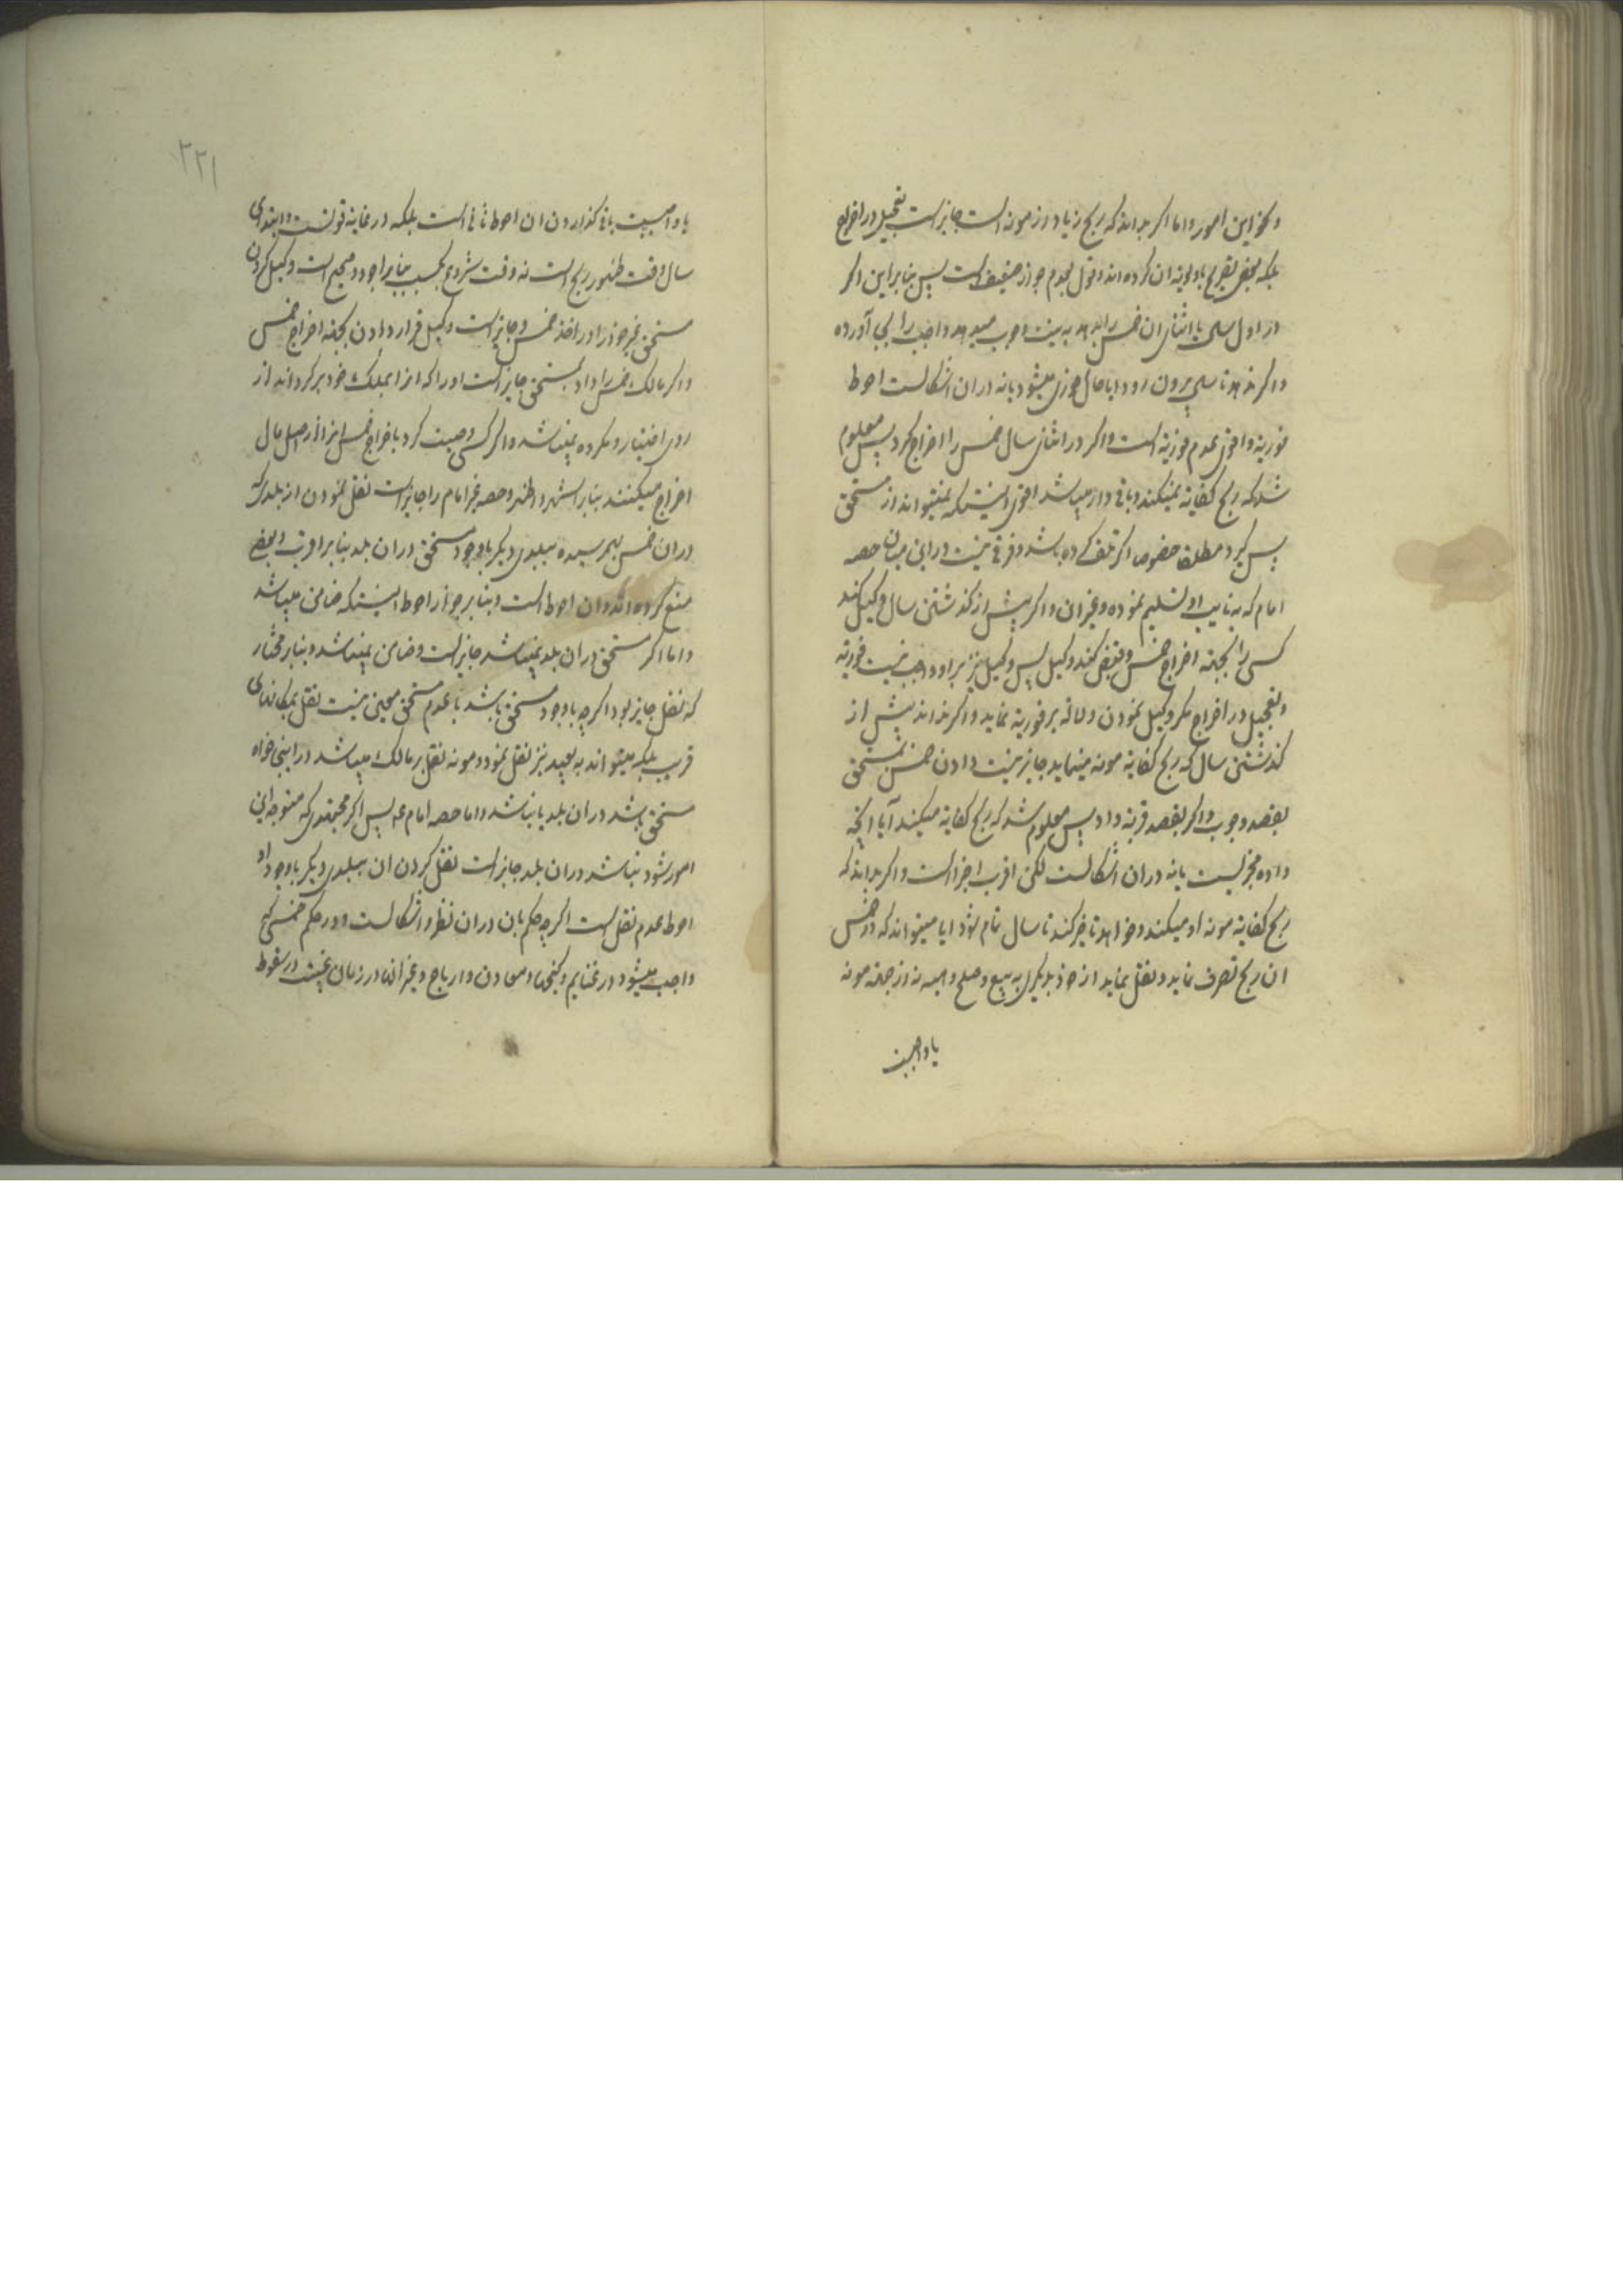 و نحو این امور و اما اکر بداند که ربح زیاد از مونه است جایز است تعجیل در اخراج
بلکه بعضی تصریح باولویة ان کرده اند و قول بعدم جواز ضعیف است پس بنابراین اکر
در اول سال یا اثنای ان خمس را بدهد به نیت وجوب میدهد و واجب را بجا آورده
و اکر ندهد تا سال بیرون رود ایا حال فوری میشود یا نه در ان اشکالست احوط
فوریة و اقوی عدم فوریة است و اکر در اثنای سال خمس را اخراج کرد پس معلوم
شد که ربح کفایة نمیکند و باقی دار میباشد اقوی اینستکه نمیتواند از مستحق
پس کیرد مطلقا خصوصا اکر تلف کرده باشد و فرقی نیست در این میان حصه
امام که به نایب او تسلیم نموده و غیر ان و اکر پیش از کذشتن سال وکیل کند
کسی را بجهة اخراج خمس و قبض کند وکیل پس وکیل نیز بر او واجب نیست فوریة
و تعجیل در اخراج مکر وکیل نمودن دلالة بر فوریة نماید و اکر نداند پیش از
کذشتن سال که ربح کفایة مونه مینماید جایز نیست دادن خمس بمستحق
بقصد وجوب و اکر بقصد قربة داد پس معلوم شد که ربح کفایة میکند آیا انچه
داده مجزیست یا نه در ان اشکالست لکن اقرب اجزا است و اکر بداند که
ربح کفایة مونه او میکند و خواهد تاخیر کند تا سال تمام شود ایا میتواند که در خمس
ان ربح تصرف نماید و نقل نماید از خود بدیکری به بیع و صلح و هبه نه از جهة مونه
یا واجبست
۲۲۱
یا واجبست باقی کذاردن ان احوط ثانی است بلکه در غایة قوتست و ابتدای
سال وقت ظهور ربح است نه وقت شروع بکسب بنابر اجود و صحیح است وکیل کردن
مستحق غیر خود را در اخذ خمس و جایز است وکیل قرار دادن بجهة اخراج خمس
و اکر مالک خمس را داد بمستحق جایز است او را که انرا بملک خود برکرداند از
روی اختیار و مکروه نمیباشد و اکر کسی وصیت کرد باخراج خمس انرا از اصل مال
اخراج میکنند بنابر اشهر و اظهر و حصه غیر امام را جایز است نقل نمودن از بلدیکه
در ان خمس بهم رسیده ببلدی دیکر با وجود مستحق در ان بلد بنابر اقرب و بعضی
منع کرده اند و ان احوط است و بنابر جواز احوط اینستکه ضامن میباشد
و اما اکر مستحق در ان بلد نمیباشد جایز است و ضامن نمیباشد و بنابر مختار
که نقل جایز بود اکر چه با وجود مستحق باشد یا عدم مستحق معین نیست نقل بمکانهای
قریب بلکه میتواند به بعید نیز نقل نمود و مونه نقل بر مالک میباشد در اینجا خواه
مستحق باشد در ان بلد یا نباشد و اما حصه امام ع پس اکر مجتهدی که متوجه این
امور شود نباشد در ان بلد جایز است نقل کردن ان ببلدی دیکر با وجود او
احوط عدم نقل است اکر چه حکم بان در ان نظر و اشکالست و در حکم خمسی که
واجب میشود در غنایم و کنجها و معادن و ارباح و غیر انها در زمان غیبت در سقوط